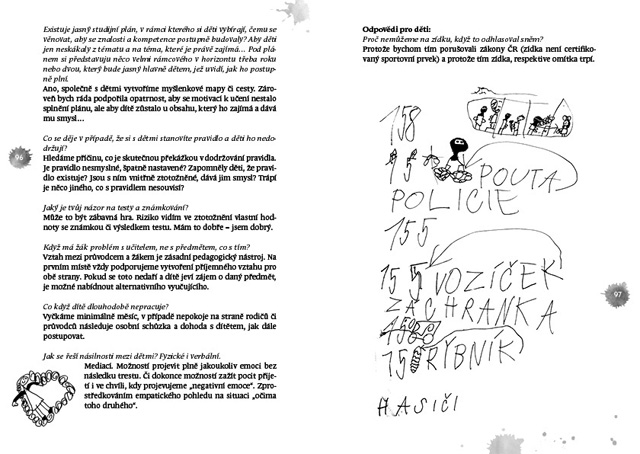 Existuje jasný studijní plán, v rámci kterého si děti vybírají, čemu se
věnovat, aby se znalosti a kompetence postupně budovaly? Aby děti
jen neskákaly z tématu a na téma, které je právě zajímá... Pod plá-
nem si představuju něco velmi rámcového v horizontu třeba roku
nebo dvou, který bude jasný hlavně dětem, jež uvidí, jak ho postup-
ně plní.
Ano, společně s dětmi vytvoříme myšlenkové mapy či cesty. Záro-
veň bych ráda podpořila opatrnost, aby se motivací k učení nestalo
splnění plánu, ale aby dítě zůstalo u obsahu, který ho zajímá a dává
mu smysl...
Co se děje v případě, že si s dětmi stanovíte pravidlo a děti ho nedo-
držují?
Hledáme příčinu, co je skutečnou překážkou v dodržování pravidla.
Je pravidlo nesmyslné, špatně nastavené? Zapomněly děti, že pravi-
dlo existuje? Jsou s ním vnitřně ztotožněné, dává jim smysl? Trápí
je něco jiného, co s pravidlem nesouvisí?
Jaký je tvůj názor na testy a známkování?
Může to být zábavná hra. Riziko vidím ve ztotožnění vlastní hod-
noty se známkou či výsledkem testu. Mám to dobře – jsem dobrý.
Když má žák problém s učitelem, ne s předmětem, co s tím?
Vztah mezi průvodcem a žákem je zásadní pedagogický nástroj. Na
prvním místě vždy podporujeme vytvoření příjemného vztahu pro
obě strany. Pokud se toto nedaří a dítě jeví zájem o daný předmět,
je možné nabídnout alternativního vyučujícího.
Co když dítě dlouhodobě nepracuje?
Vyčkáme minimálně měsíc, v případě nepokoje na straně rodičů či
průvodců následuje osobní schůzka a dohoda s dítětem, jak dále
postupovat.
Jak se řeší násilnosti mezi dětmi? Fyzické i verbální.
Mediací. Možností projevit plně jakoukoliv emoci bez
následku trestu. Či dokonce možností zažít pocit přije-
tí i ve chvíli, kdy projevujeme „negativní emoce“. Zpro-
středkováním empatického pohledu na situaci „očima
toho druhého“.
96
Odpovědi pro děti:
Proč nemůžeme na zídku, když to odhlasoval sněm?
Protože bychom tím porušovali zákony ČR (zídka není certifiko-
vaný sportovní prvek) a protože tím zídka, respektive omítka trpí.
158
POUTA
POLICIE
155
155 VOZÍČEK
ZÁCHRANKA
150 RYBNÍK
HASIČI
97